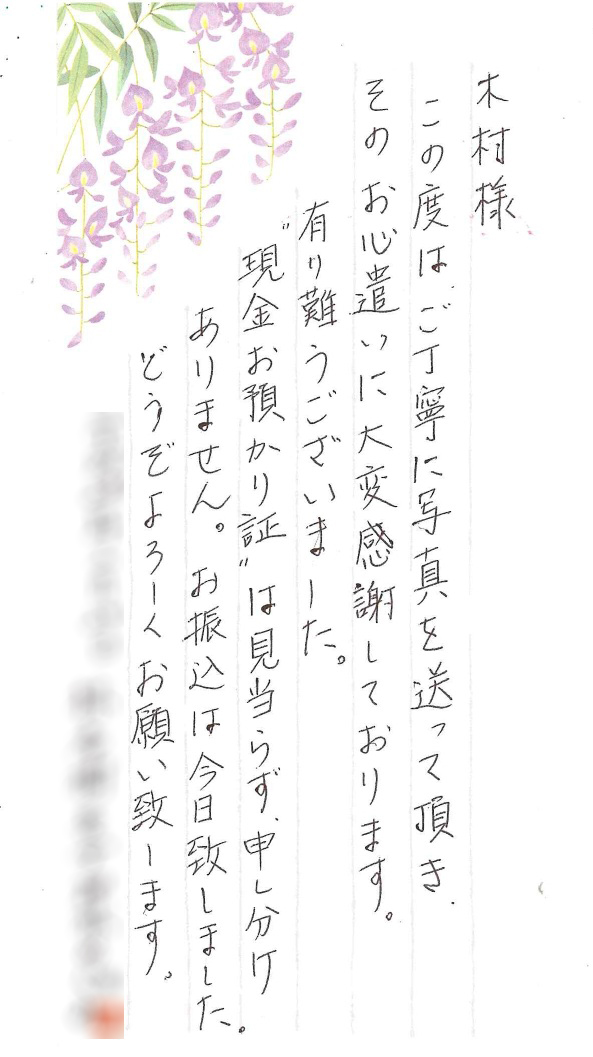 木村様
この度はご丁寧に写真を送って頂き、
そのお心遣いに大変感謝しております。
有り難うございました。
"現金お預かり証"は見当らず、申し分け
ありません。お振込は今日致しました。
どうぞよろしくお願い致します。